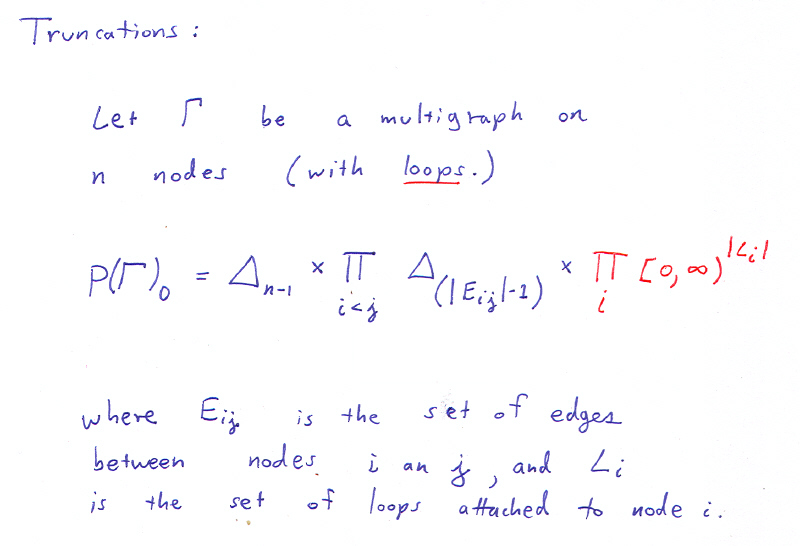 Truncations:
Let Γ be a multigraph on
n nodes (with loops.)
P(Γ)₀ = Δₙ₋₁ × ∏_{i<j} Δ_{(|E_{ij}|-1)} × ∏_i [0,∞)^{|L_i|}
where E_{ij} is the set of edges
between nodes i an j, and L_i
is the set of loops attached to node i.